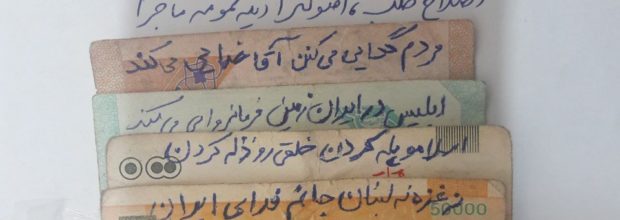 اصلاح طلب، اصولگرا دیگه تمومه ماجرا
مردم گدایی می کنن آقا خدایی می کند
ابلیس در ایران زمین فرمانروایی می کند
اسلامو پله کردن خلقی رو ذله کردن
نه غزه نه لبنان جانم فدای ایران
50000